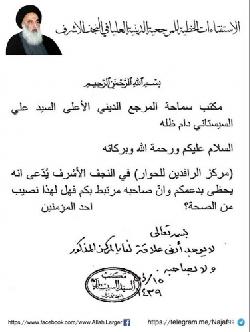 الاستفتاءات الخطية للمرجعية الدينية العليا في النجف الاشرف
بسم الله الرحمن الرحيم
مكتب سماحة المرجع الديني الأعلى السيد علي
السيستاني دام ظله
السلام عليكم ورحمة الله وبركاته
(مركز الرافدين للحوار) في النجف الأشرف يُدعى انه
يحظى بدعمكم وانّ صاحبه مرتبط بكم فهل لهذا نصيب
من الصحة؟
احد المؤمنين
بسمه تعالى
لا يوجد أي علاقة لنا بالمركز المذكور
ولا بصاحبه
مكتب
السيد السيستاني
١٤٣٩
https://www.facebook.com/www.Allah.Larger
https://telegram.me/Najaf